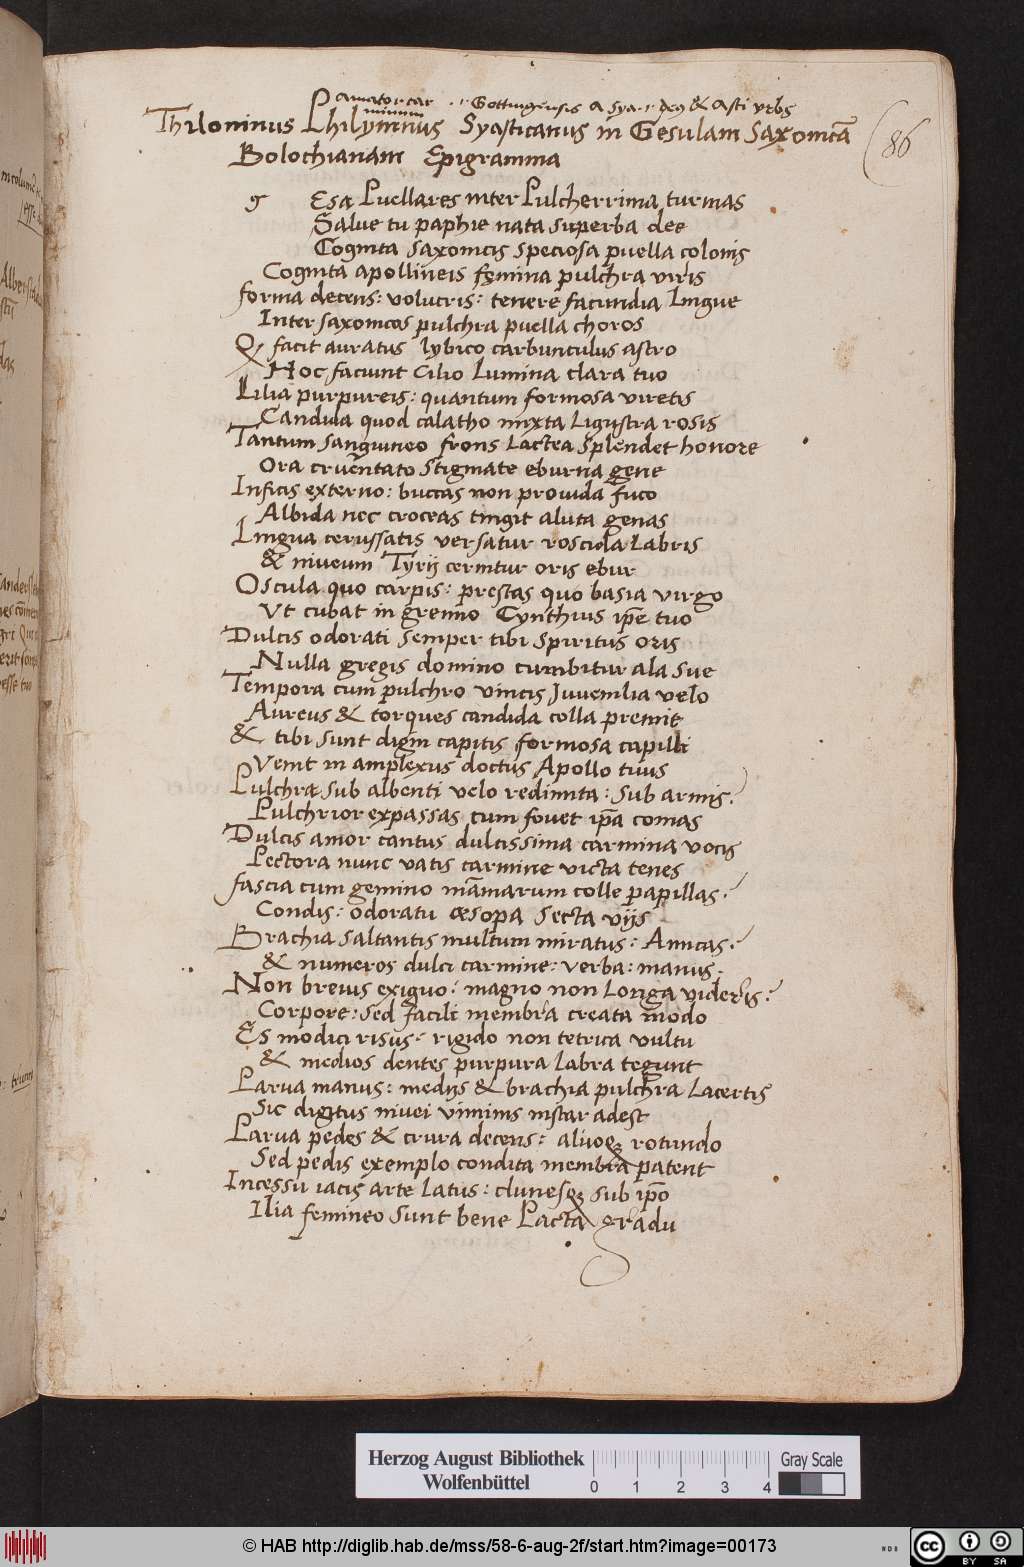 amator car .ı. Gottingensis a sya .ı. deq & asti vrbs
minum
Thiloninus Philymnus Syasticanus in Gesulam Saxonicā
Bolochianam Epigramma
86
g Esa Puellares inter Pulcherrima turmas
Salue tu paphie nata superba dee
Cognita saxonicis speciosa puella colonis
Cognita apollineis femina pulchra viris
forma decens: volucris: tenere facundia Lingue
Inter saxonicos pulchra puella choros
Q facit auratus lybico carbunculus astro
Hoc faciunt Cilio Lumina clara tuo
Lilia purpureis: quantum formosa viretis
Candida quod calatho mixta Ligustra rosis
Tantum sanguineo frons Lactea splendet honore
Ora cruentato stigmate eburna gene
Inficis externo: buccas non prouida fuco
Albida nec croceas tingit aluta genas
Lingua cerussatis versatur roscida Labris
& niueum Tyrij cernitur oris ebur
Oscula quo carpis: prestas quo basia virgo
Vt cubat in gremio Cynthius ip̄e tuo
Dulcis odorati semper tibi spiritus oris
Nulla gregis domino cumbitur ala sue
Tempora cum pulchro vincis Juuenilia velo
Aureus & torques candida colla premit
& tibi sunt digni capitis formosa capilli
Venit in amplexus doctus Apollo tuus
Pulchra sub albenti velo redimita: sub armis:
Pulchrior expassas cum fouet ip̄a comas
Dulcis amor cantus dulcissima carmina vocis
Pectora nunc vatis carmine victa tenes
fascia cum gemino māmarum colle papillas:
Condis: odoratu æsopa secta vijs
Brachia saltantis multum miratus: Amicas:
& numeros dulci carmine: verba: manus.
Non breuis exiguo: magno non Longa videris:
Corpore: sed facili membra creata modo
Es modici risus: rigido non tetrica vultu
& medios dentes purpura labra tegunt
Parua manus: medijs & brachia pulchra Lacertis
Sic digitus niuei viminis instar adest
Parua pedes & crura decens: aluoq; rotundo
Sed pedis exemplo condita membra patent
Incessu iacis arte latus: clunesq; sub ip̄o
Ilia femineo sunt bene Pacta gradu
Herzog August Bibliothek
Wolfenbüttel
0 1 2 3 4
Gray Scale
© HAB http://diglib.hab.de/mss/58-6-aug-2f/start.htm?image=00173
cc BY SA